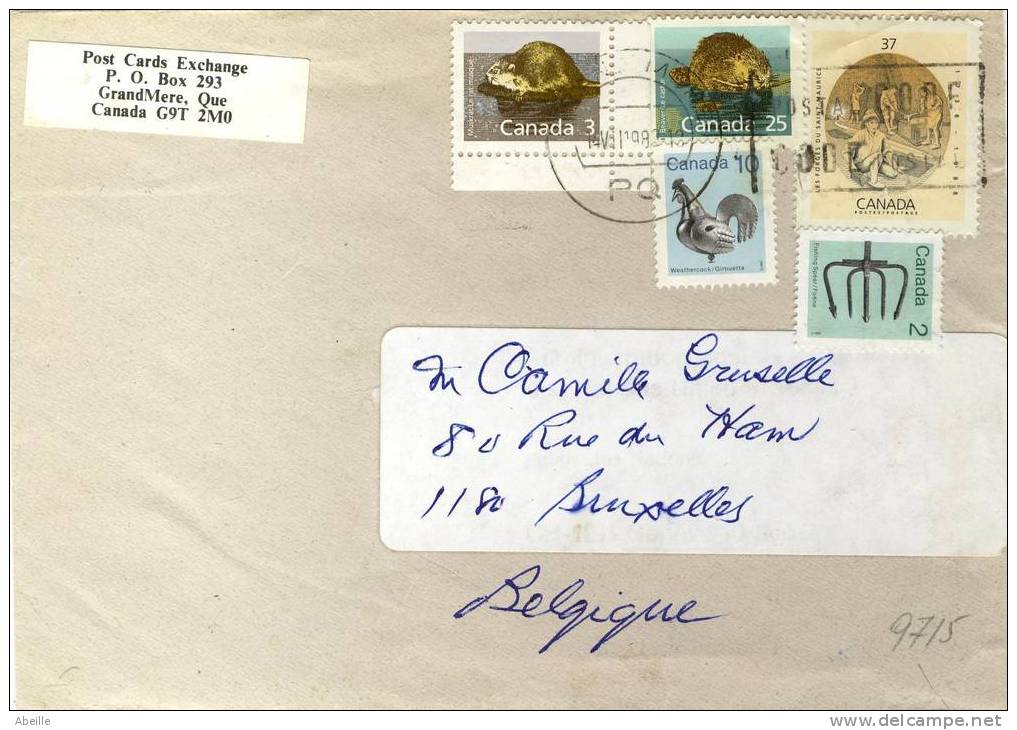 Post Cards Exchange
P. O. Box 293
GrandMere, Que
Canada G9T 2M0
Muskrat/Le rat musqué
Canada 3
Beaver/Le castor
Canada 25
37
LES FORGES DU SAINT-MAURICE
CANADA
POSTES/POSTAGE
CODE
PQ
Canada 10
Weathercock/Girouette
Fishing Spear/Foëne
Canada 2
M Camille Gruselle
80 Rue du Ham
1180 Bruxelles
Belgique
9715
Abeille
www.delcampe.net